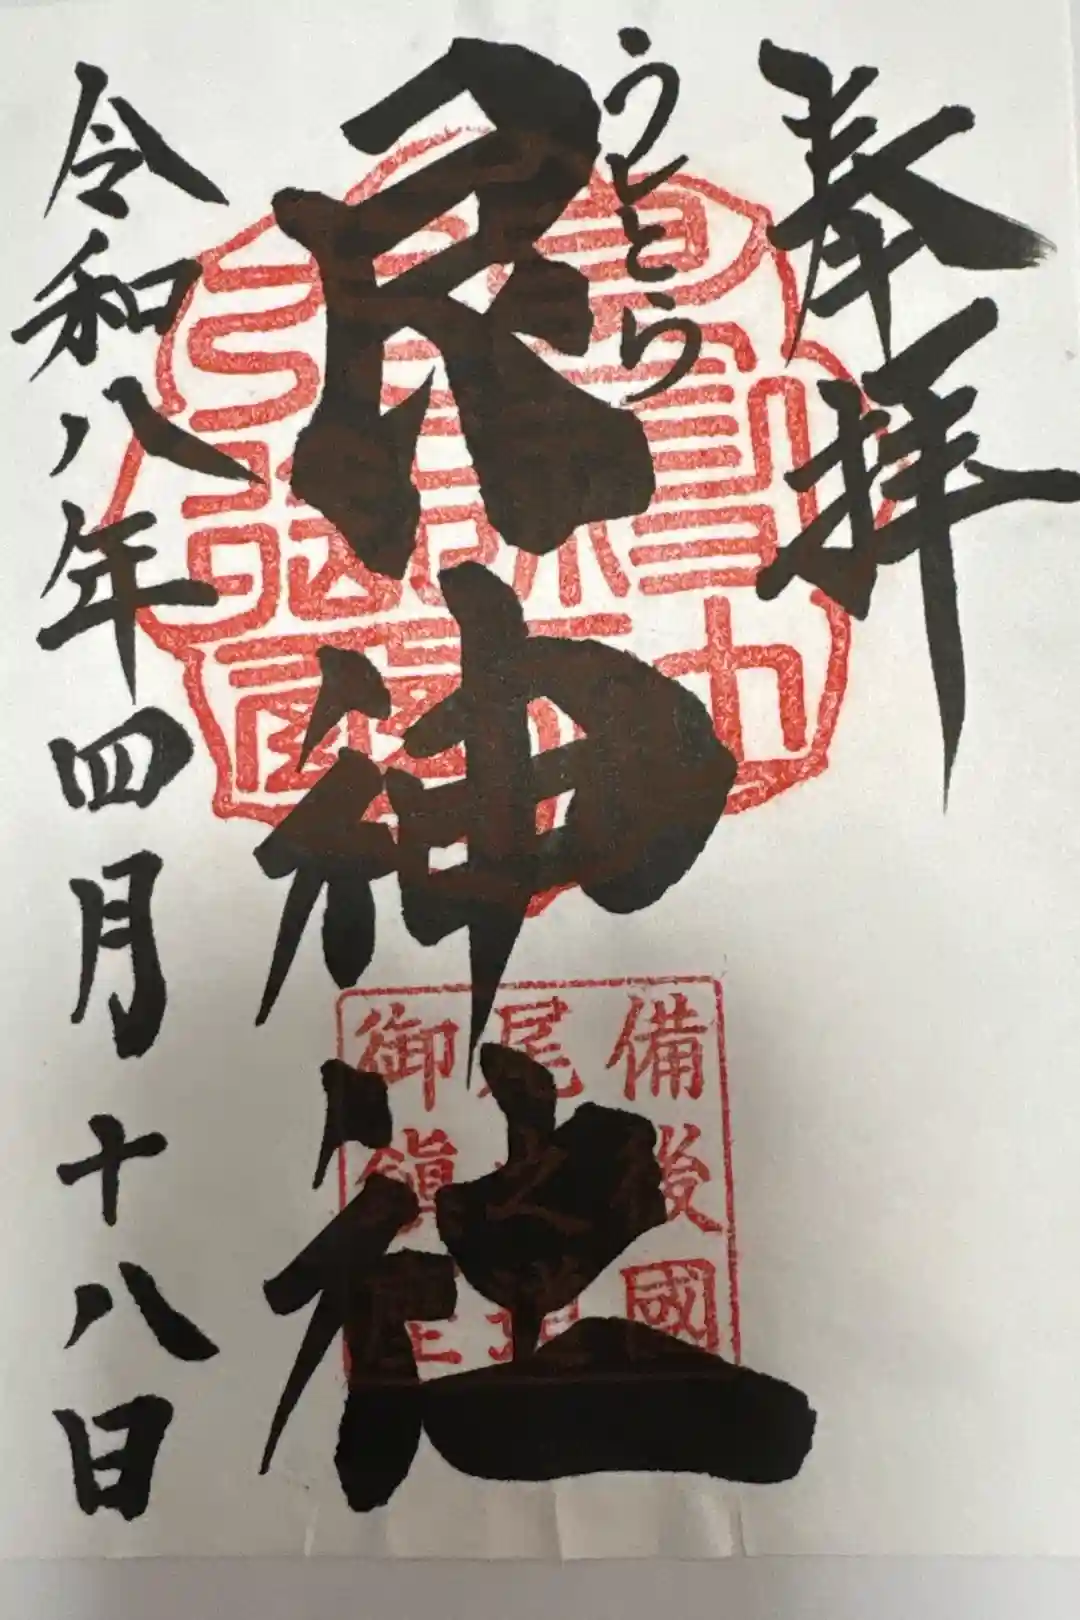 奉拝
うしとら
艮神社
令和八年四月十八日
備後國
尾之道
御鎭座